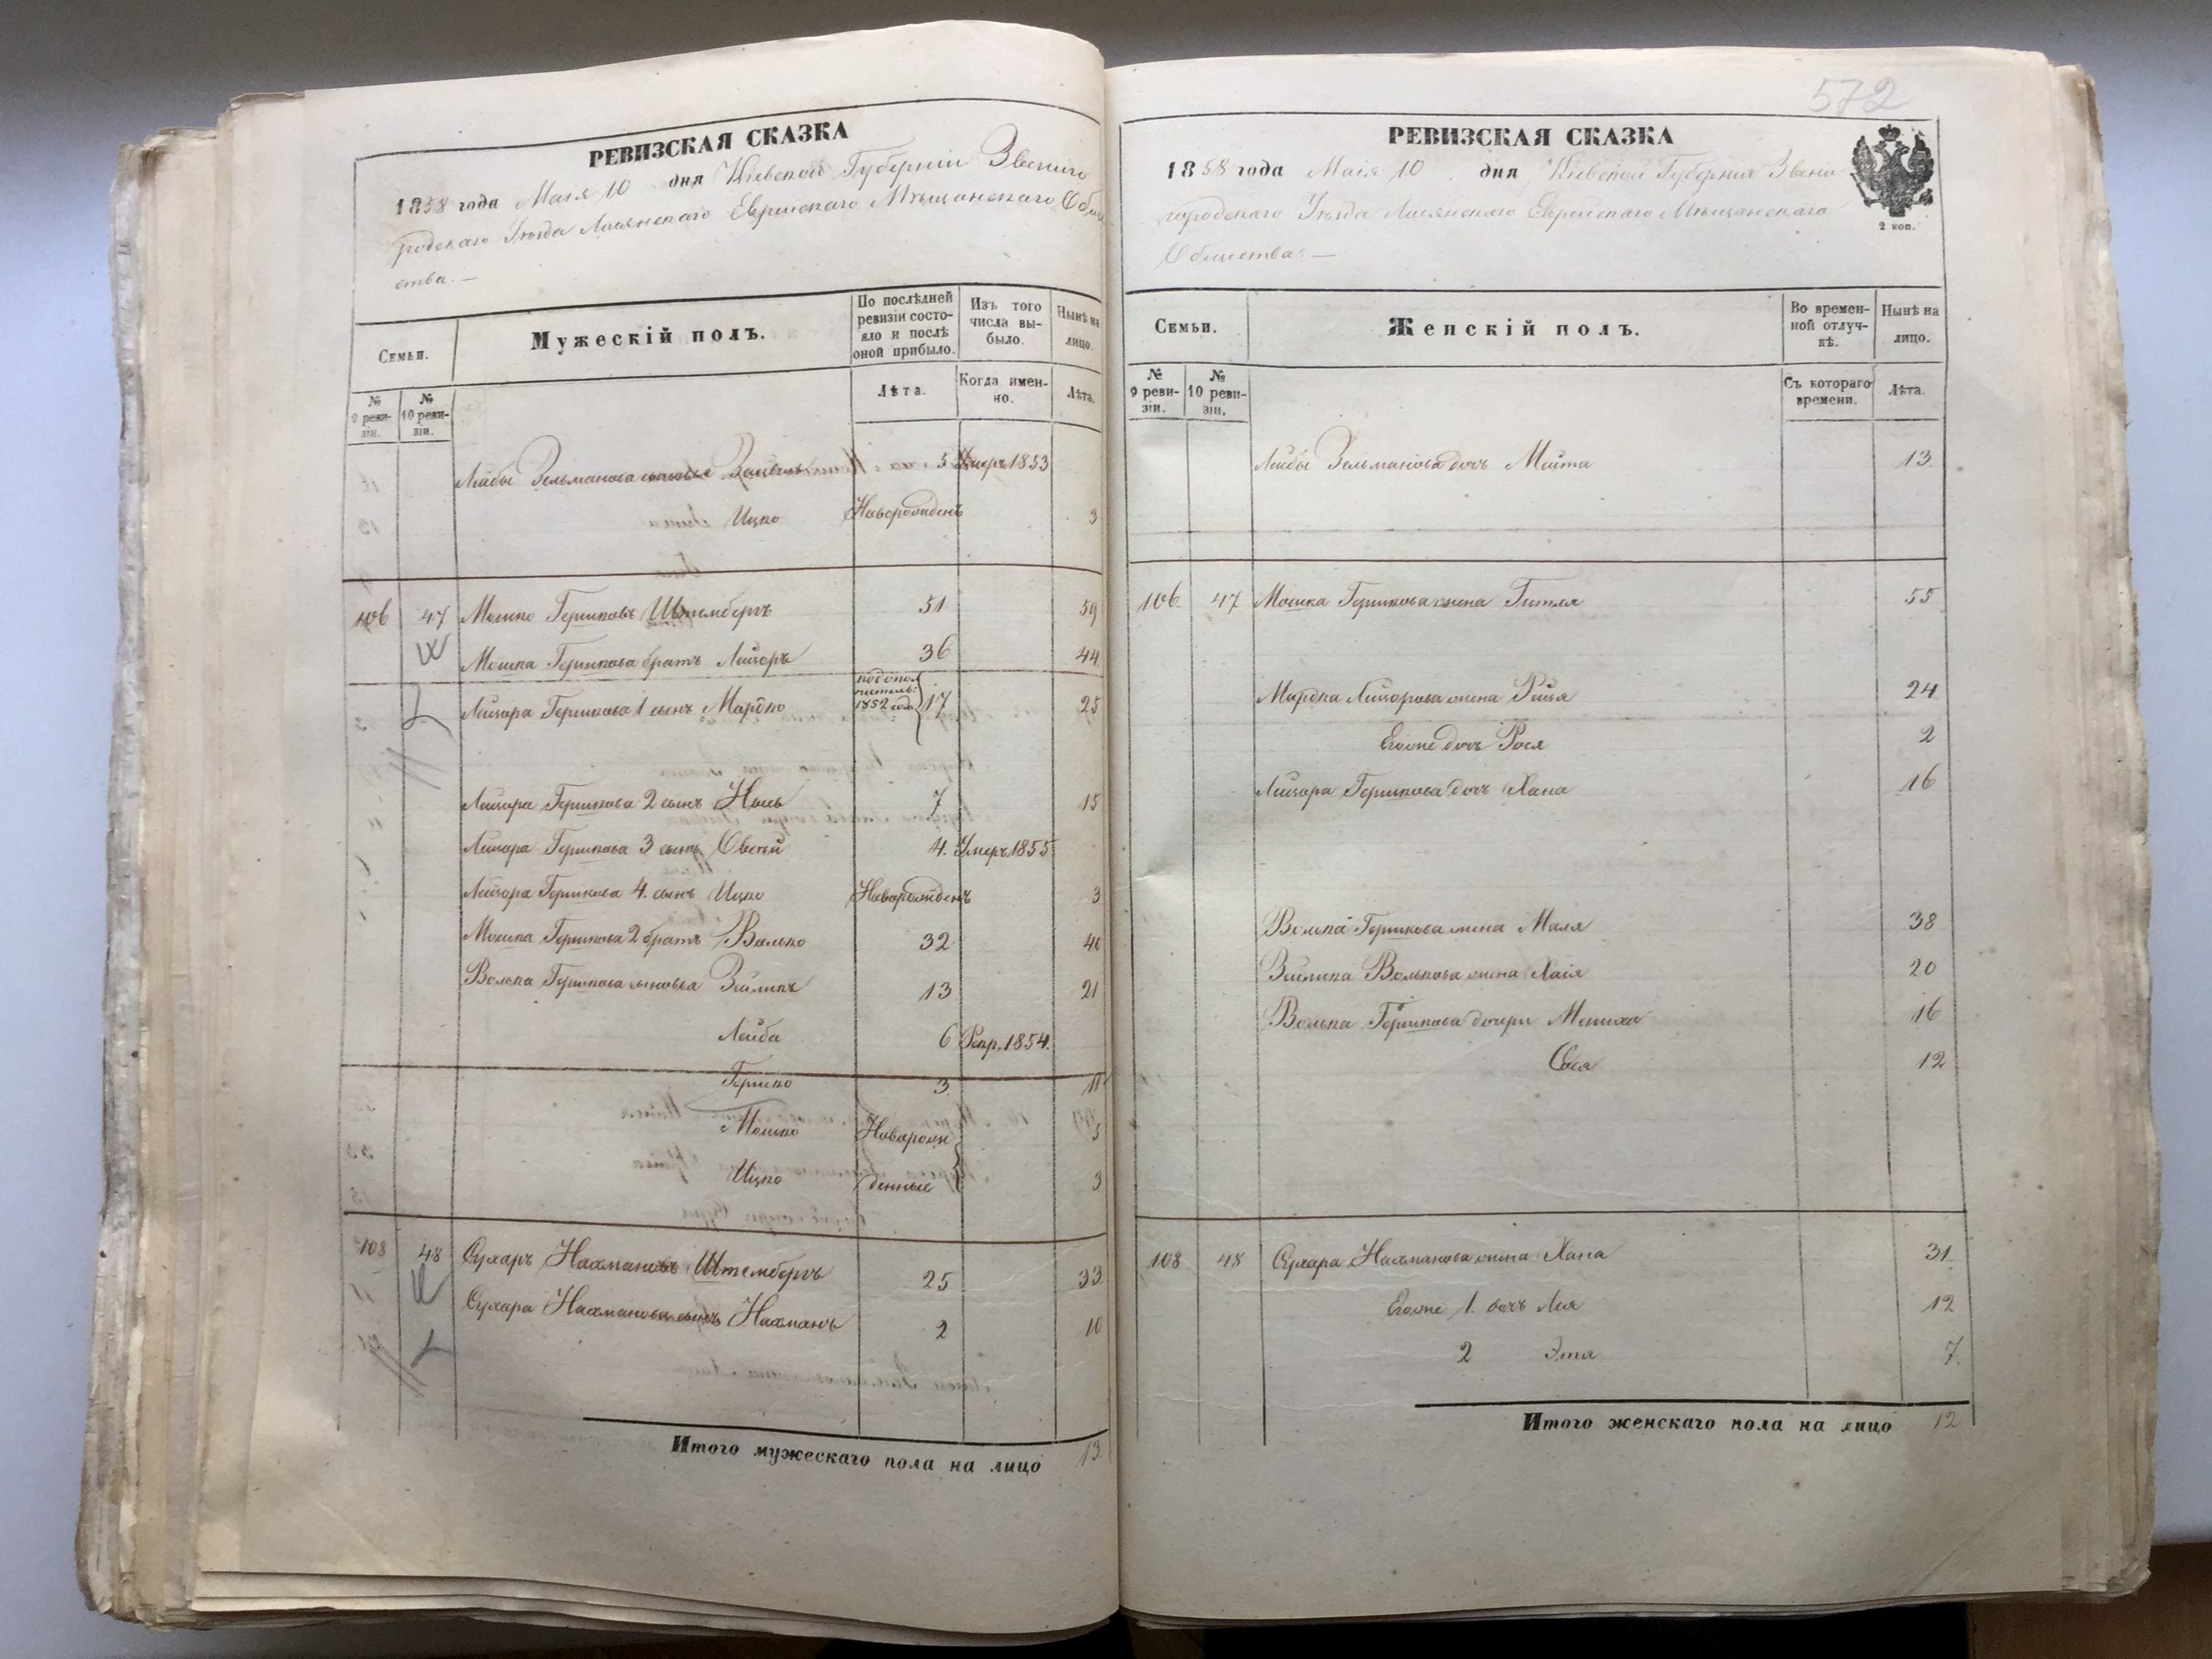 РЕВИЗСКАЯ СКАЗКА
1858 года Маія 10 дня Кіевской Губерніи Звениго
родскаго Уѣзда Лисянскаго Еврейскаго Мѣщанскаго Обще
ства. —
Семьи.
Мужескій полъ.
По послѣдней ревизіи состояло и послѣ оной прибыло.
Изъ того числа выбыло.
Нынѣ на лицо.
№ 9 ревизіи.
№ 10 ревизіи.
Лѣта.
Когда именно.
Лѣта.
Лейбы Зельманова сыновья 5 Умеръ 1853
Ицко Новорожденъ 3
106 47 Мошко Гершковъ Штембергъ 51 59
Мошка Гершкова братъ Лейзоръ 36 44
Лейзора Гершкова 1 сынъ Мардко 1852 года 17 25
Лейзора Гершкова 2 сынъ 7 15
Лейзора Гершкова 3 сынъ Овсей 4. Умеръ 1855
Лейзора Гершкова 4. сынъ Ицко Новорожденъ 3
Мошка Гершкова 2 братъ Волько 32 40
Волька Гершкова сыновья Зейликъ 13 21
Лейба 6 Рекр. 1854.
Гершко 3 11
Мошко Новорож 5
Ицко денные 3
108 48 Сухаръ Нахмановъ Штембергъ 25 33
Сухара Нахманова сынъ Нахманъ 2 10
Итого мужескаго пола на лицо 13
572
РЕВИЗСКАЯ СКАЗКА
1858 года Маія 10 дня Кіевской Губерніи Звени
городскаго Уѣзда Лисянскаго Еврейскаго Мѣщанскаго
Общества. —
2 коп.
Семьи.
Женскій полъ.
Во временной отлучкѣ.
Нынѣ на лицо.
№ 9 ревизіи.
№ 10 ревизіи.
Съ котораго времени.
Лѣта.
Лейбы Зельманова дочь Мейта 13
106. 47 Мошка Гершкова жена Гитля 55
Мардка Лейзорова жена Рейзя 24
Егоже дочь Рося 2
Лейзора Гершкова дочь Хана 16
Волька Гершкова жена Маля 38
Зейлика Волькова жена Хаія 20
Волька Гершкова дочери Мениха 16
Сося 12
108 48 Сухара Нахманова жена Хана 31
Егоже 1. дочь Лея 12
2 Этя 7.
Итого женскаго пола на лицо 12